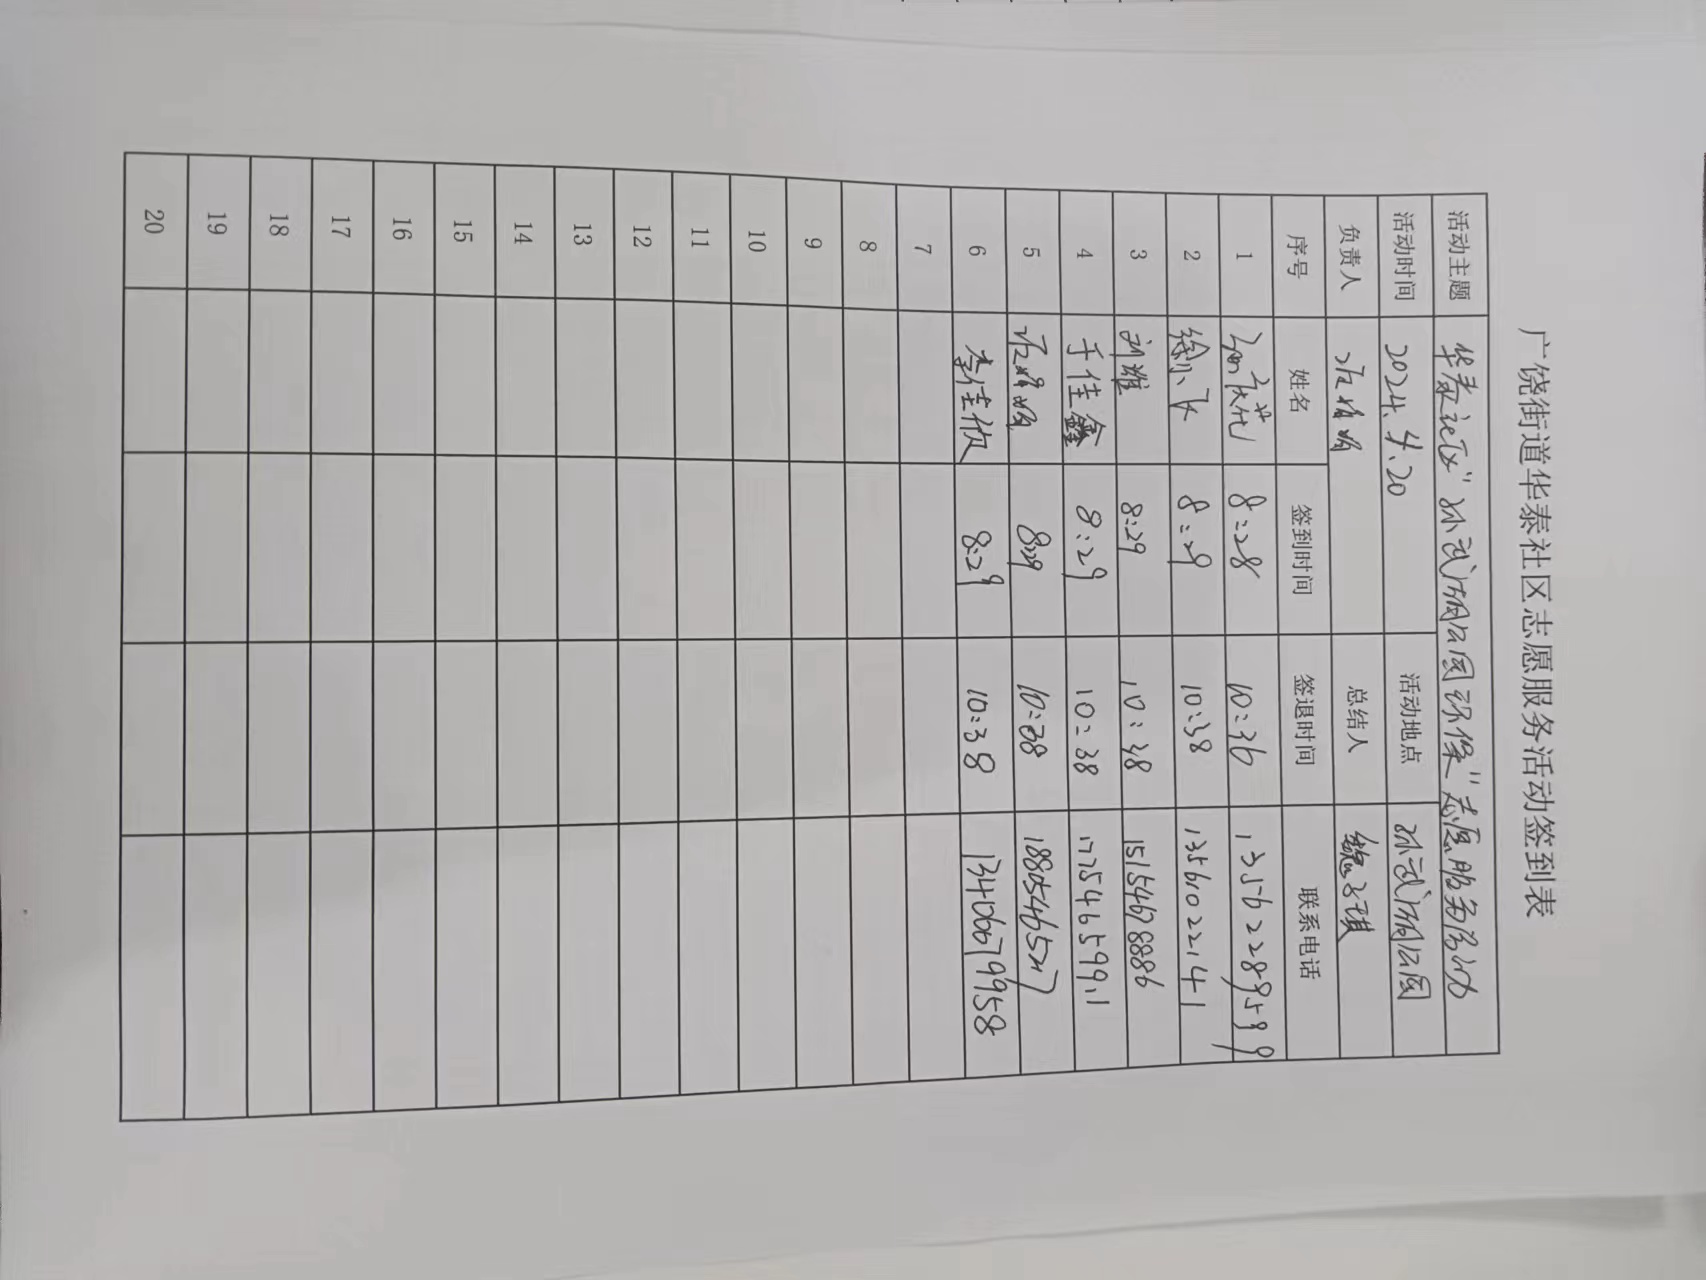 广饶街道华泰社区志愿服务活动签到表
活动主题 华泰社区"孙武湖公园环保"志愿服务活动
活动时间 2024.4.20 活动地点 孙武湖公园
负责人 总结人
序号 姓名 签到时间 签退时间 联系电话
1 8:28 10:36 13562289589
2 8:29 10:38 13561022141
3 刘雄 8:29 10:38 15154678886
4 于佳鑫 8:29 10:38 17754659911
5 8:29 10:38
6 8:29 10:38 13406679958
7
8
9
10
11
12
13
14
15
16
17
18
19
20